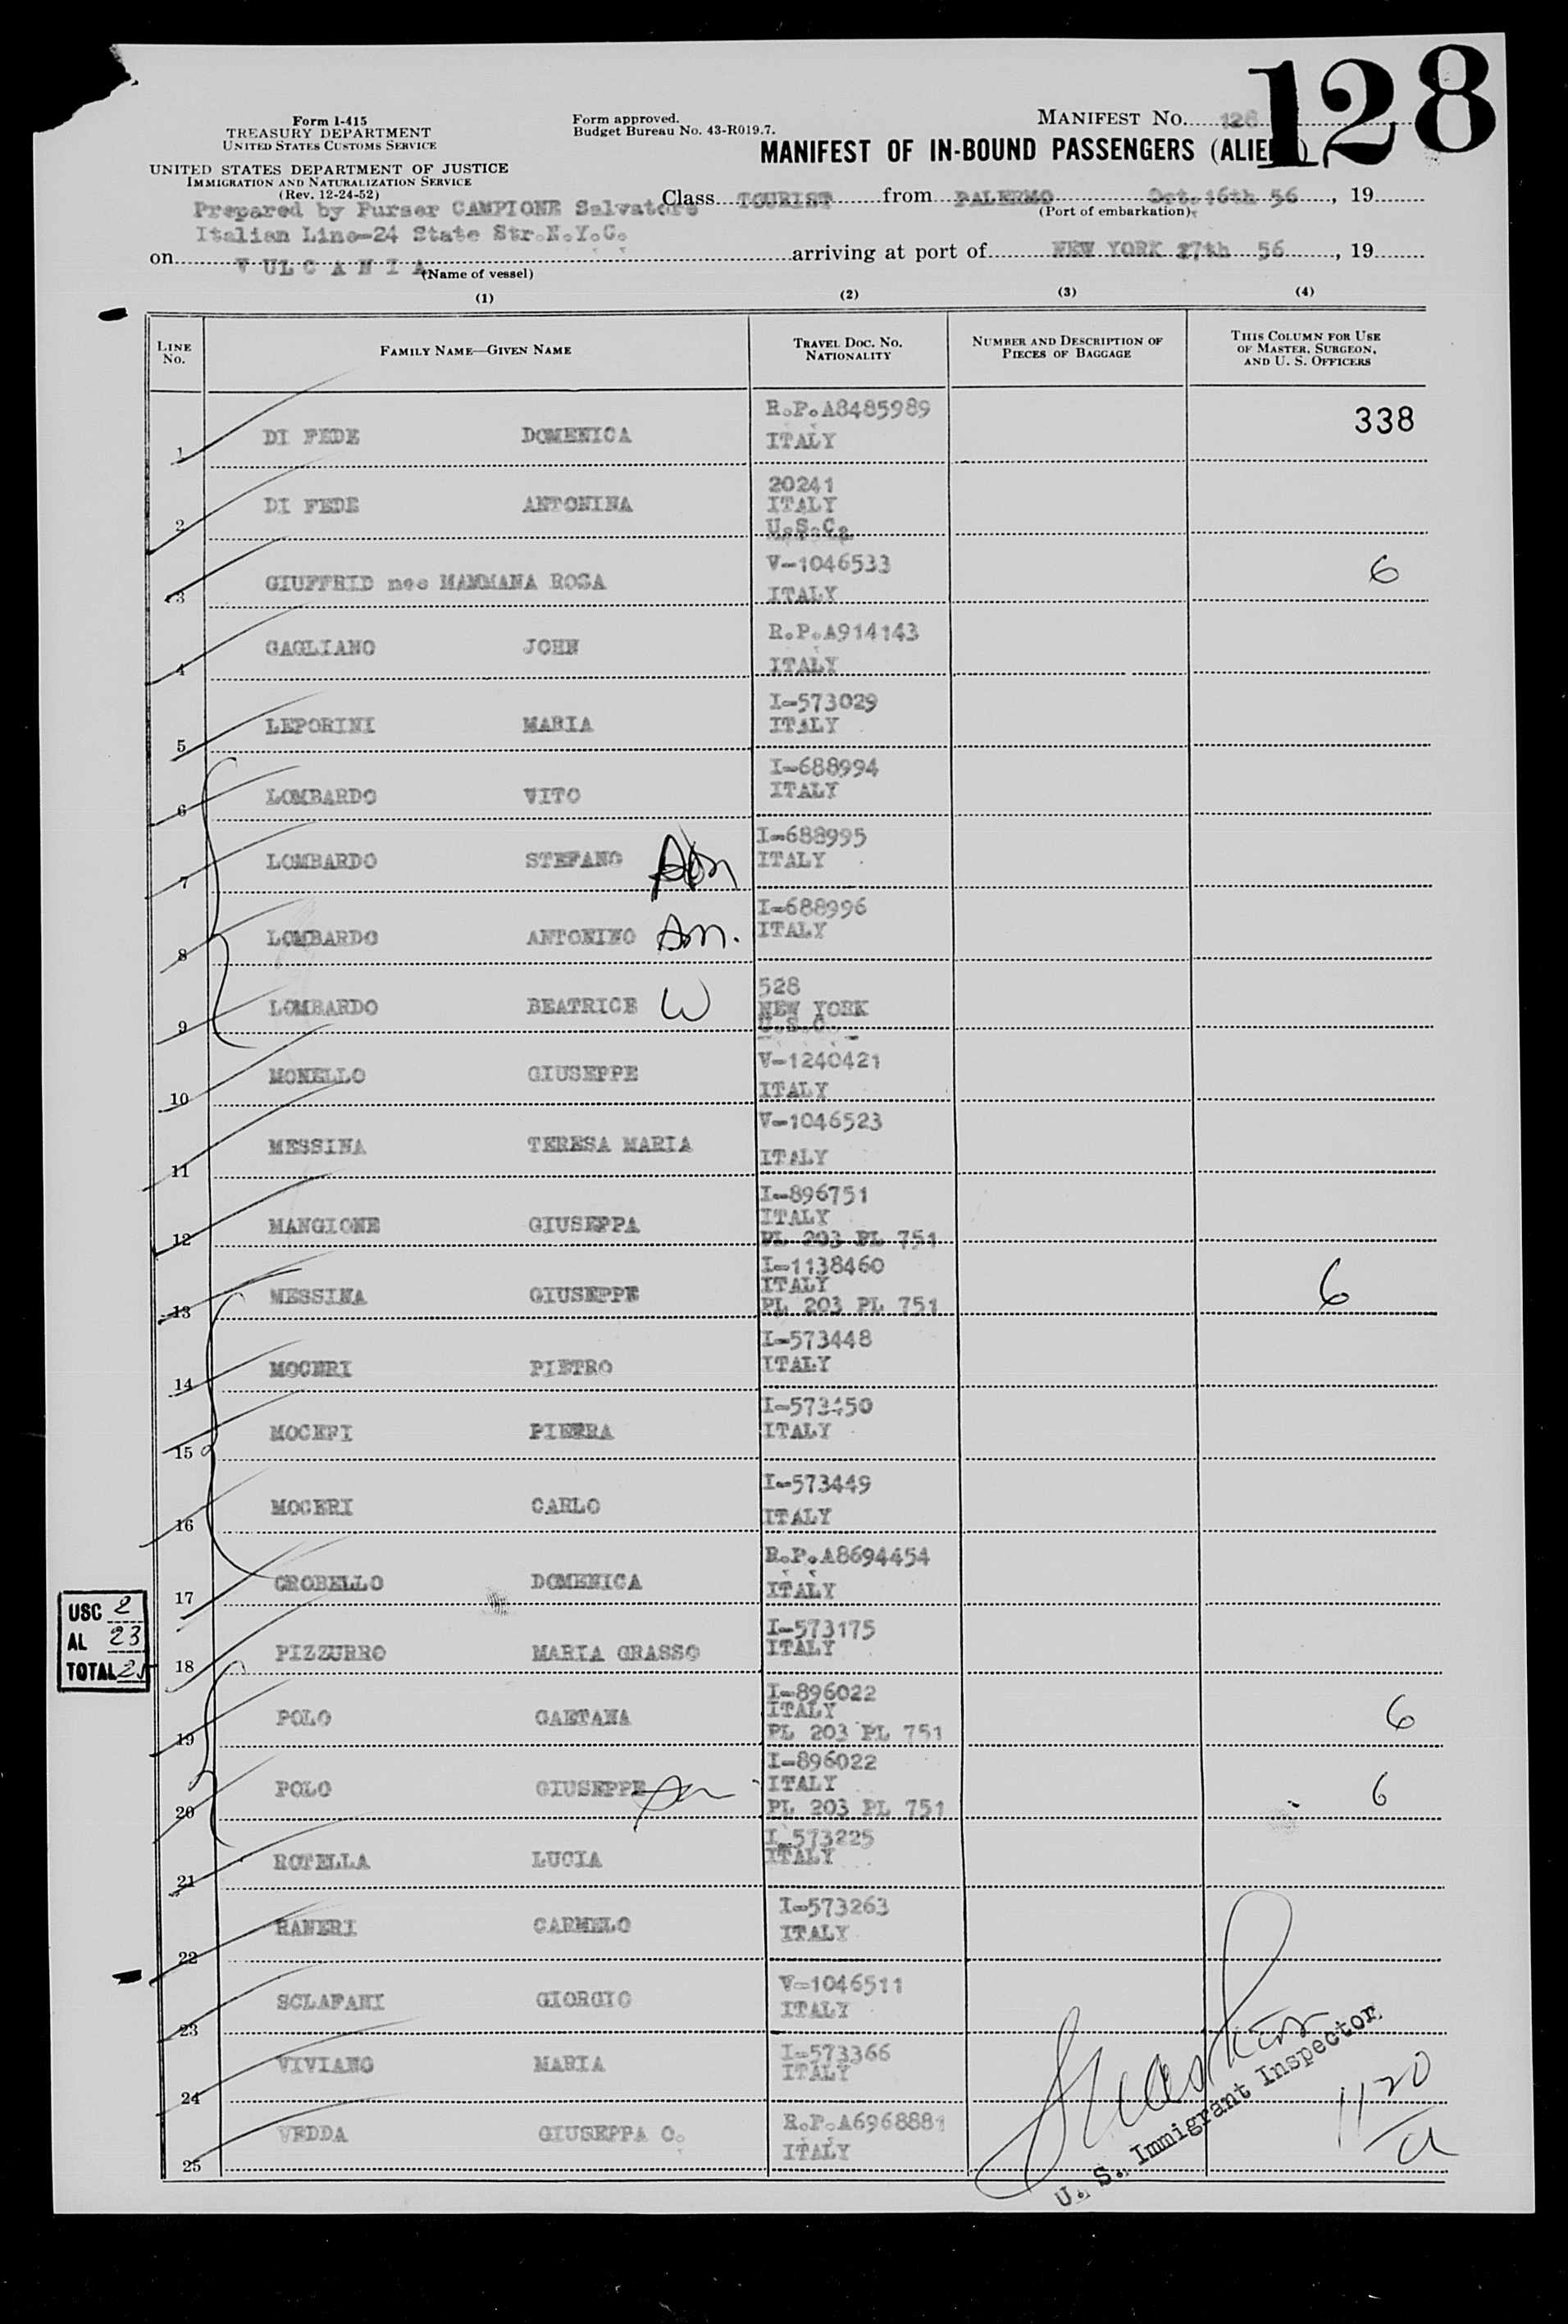 128
Form I-415
TREASURY DEPARTMENT
UNITED STATES CUSTOMS SERVICE
UNITED STATES DEPARTMENT OF JUSTICE
IMMIGRATION AND NATURALIZATION SERVICE
(Rev. 12-24-52)
Form approved.
Budget Bureau No. 43-R019.7.
MANIFEST NO. 128
MANIFEST OF IN-BOUND PASSENGERS (ALIE )
Prepared by Purser CAMPIONE Salvatore
Italian Line-24 State Str.N.Y.C.
Class TOURIST from PALERMO Oct. 16th 56, 19
(Port of embarkation)
on VULCANIA arriving at port of NEW YORK 27th 56, 19
(Name of vessel)
(1) (2) (3) (4)
LINE No. FAMILY NAME—GIVEN NAME TRAVEL DOC. NO. NATIONALITY NUMBER AND DESCRIPTION OF PIECES OF BAGGAGE THIS COLUMN FOR USE OF MASTER, SURGEON, AND U. S. OFFICERS
1 DI FEDE DOMENICA R.P.A8485989 ITALY 338
2 DI FEDE ANTONINA 20241 ITALY U.S.C.
3 GIUFFRID nee MAMMANA ROSA V-1046533 ITALY 6
4 GAGLIANO JOHN R.P.A914143 ITALY
5 LEPORINI MARIA I-573029 ITALY
6 LOMBARDO VITO I-688994 ITALY
7 LOMBARDO STEFANO I-688995 ITALY
8 LOMBARDO ANTONINO I-688996 ITALY
9 LOMBARDO BEATRICE W 528 NEW YORK U.S.C.
10 MONELLO GIUSEPPE V-1240421 ITALY
11 MESSINA TERESA MARIA V-1046523 ITALY
12 MANGIONE GIUSEPPA I-896751 ITALY PL 203 PL 751
13 MESSINA GIUSEPPE I-1138460 ITALY PL 203 PL 751 6
14 MOCERI PIETRO I-573448 ITALY
15 MOCERI PIERRA I-573450 ITALY
16 MOCERI CARLO I-573449 ITALY
17 OROBELLO DOMENICA R.P.A8694454 ITALY
18 PIZZURRO MARIA GRASSO I-573175 ITALY
19 POLO GAETANA I-896022 ITALY PL 203 PL 751 6
20 POLO GIUSEPPE I-896022 ITALY PL 203 PL 751 6
21 ROTELLA LUCIA I-573225 ITALY
22 RANERI CARMELO I-573263 ITALY
23 SCLAFANI GIORGIO V-1046511 ITALY
24 VIVIANO MARIA I-573366 ITALY
25 VEDDA GIUSEPPA C. R.P.A6968881 ITALY
USC 2
AL 23
TOTAL 25
U. S. Immigrant Inspector
1120
a